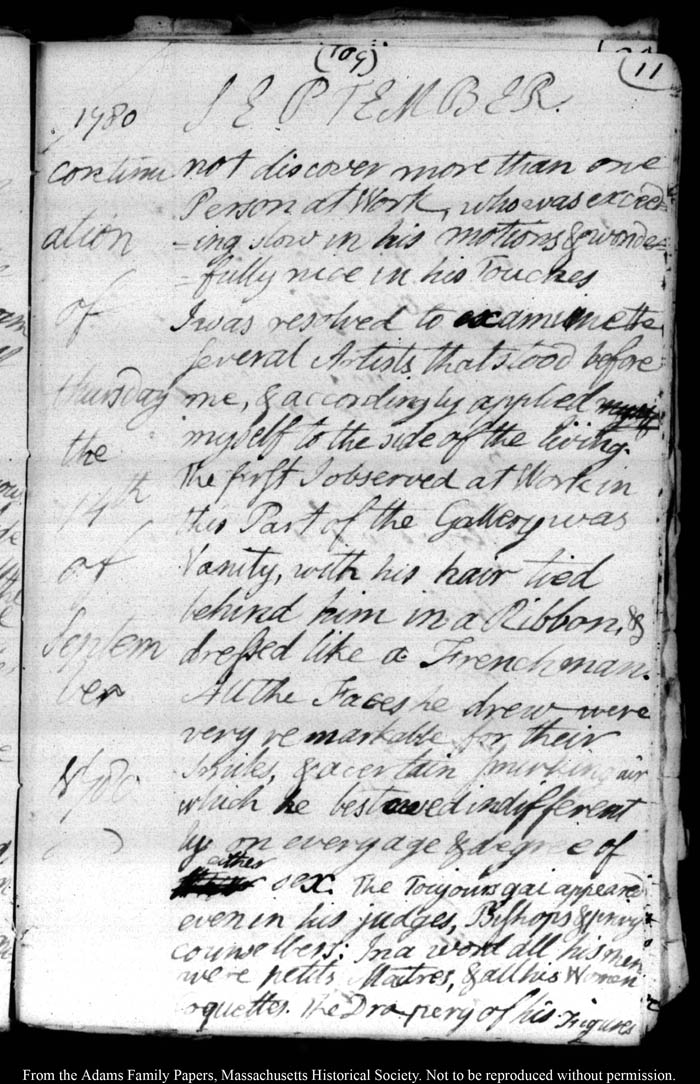 (109)
(11
1780 SEPTEMBER.
continu
ation
of
thursday
the
14th
of
Septem
ber
1780
not discover more than one
Person at Work, who was exceed=
=ing slow in his motions & wonde=
=fully nice in his Touches
I was resolved to examine the
several Artists that stood before
me, & accordingly applied
myself to the side of the living.
The first I observed at Work in
this Part of the Gallery was
Vanity, with his hair tied
behind him in a Ribbon, &
dressed like a Frenchman.
All the Faces he drew were
very remarkable for their
Smiles, & a certain smirking air
which he bestowed indifferent
ly on every age & degree of
either sex. The Toujours gai appeared
even in his judges, Bishops & privy
counsellers; In a word all his men
were petits Maitres, & all his Women
oquettes. The Drapery of his Figures
From the Adams Family Papers, Massachusetts Historical Society. Not to be reproduced without permission.